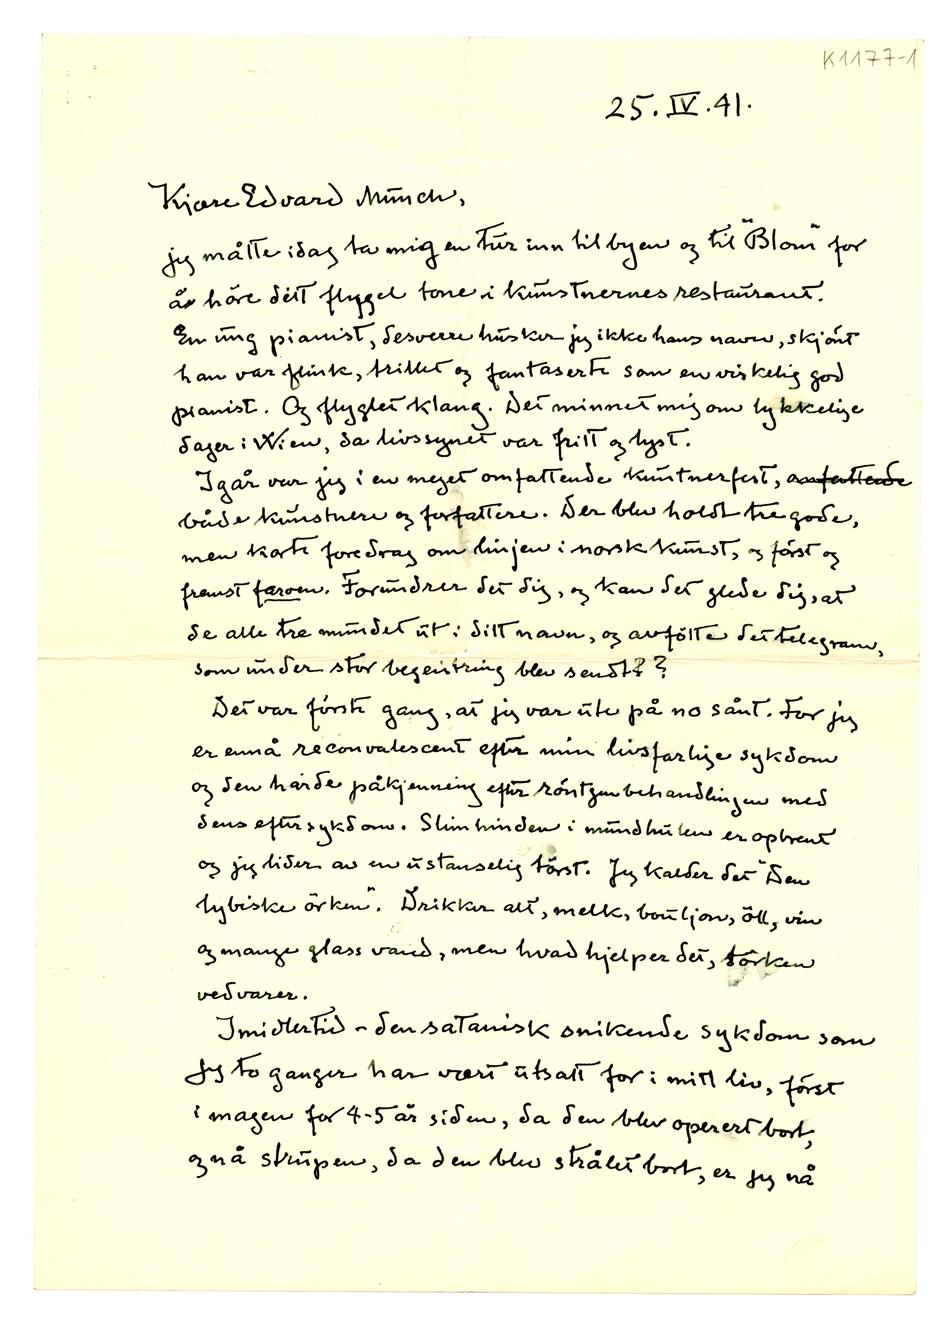 K1177-1
25. IV. 41.
Kjære Edvard Munch,
jeg måtte idag ta mig en tur inn til byen og til "Blom" for
å höre ditt flygel tone i kunstnernes restaurant.
En ung pianist, desverre husker jeg ikke hans navn, skjönt
han var flink, trillet og fantaserte som en virkelig god
pianist. Og flyglet klang. Det minnet mig om lykkelige
dager i Wien, da livssynet var fritt og lyst.
Igår var jeg i en meget omfattende kunstnerfest, omfattende
både kunstnere og forfattere. Der blev holdt tre gode,
men korte foredrag om linjen i norsk kunst, og först og
fremst farven. Forundrer det dig, og kan det glede dig, at
de alle tre mundet ut i ditt navn, og avfötte det telegram,
som under stor begeistring blev sendt??
Det var förste gang, at jeg var ute på no sånt. For jeg
er ennå reconvalescent efter min livsfarlige sykdom
og den harde påkjenning efter röntgenbehandlingen med
dens eftersykdom. Slimhinden i mundhulen er opbrent
og jeg lider av en ustanselig törst. Jeg kalder det "Den
lybiske örken". Drikker alt, melk, bouljon, öll, vin
og mange glass vand, men hvad hjelper det, törken
vedvarer.
Imidlertid - den satanisk snikende sykdom som
jeg to ganger har vært utsatt for i mitt liv, först
i magen for 4-5 år siden, da den blev operert bort,
og nå strupen, da den blev strålet bort, er jeg nå